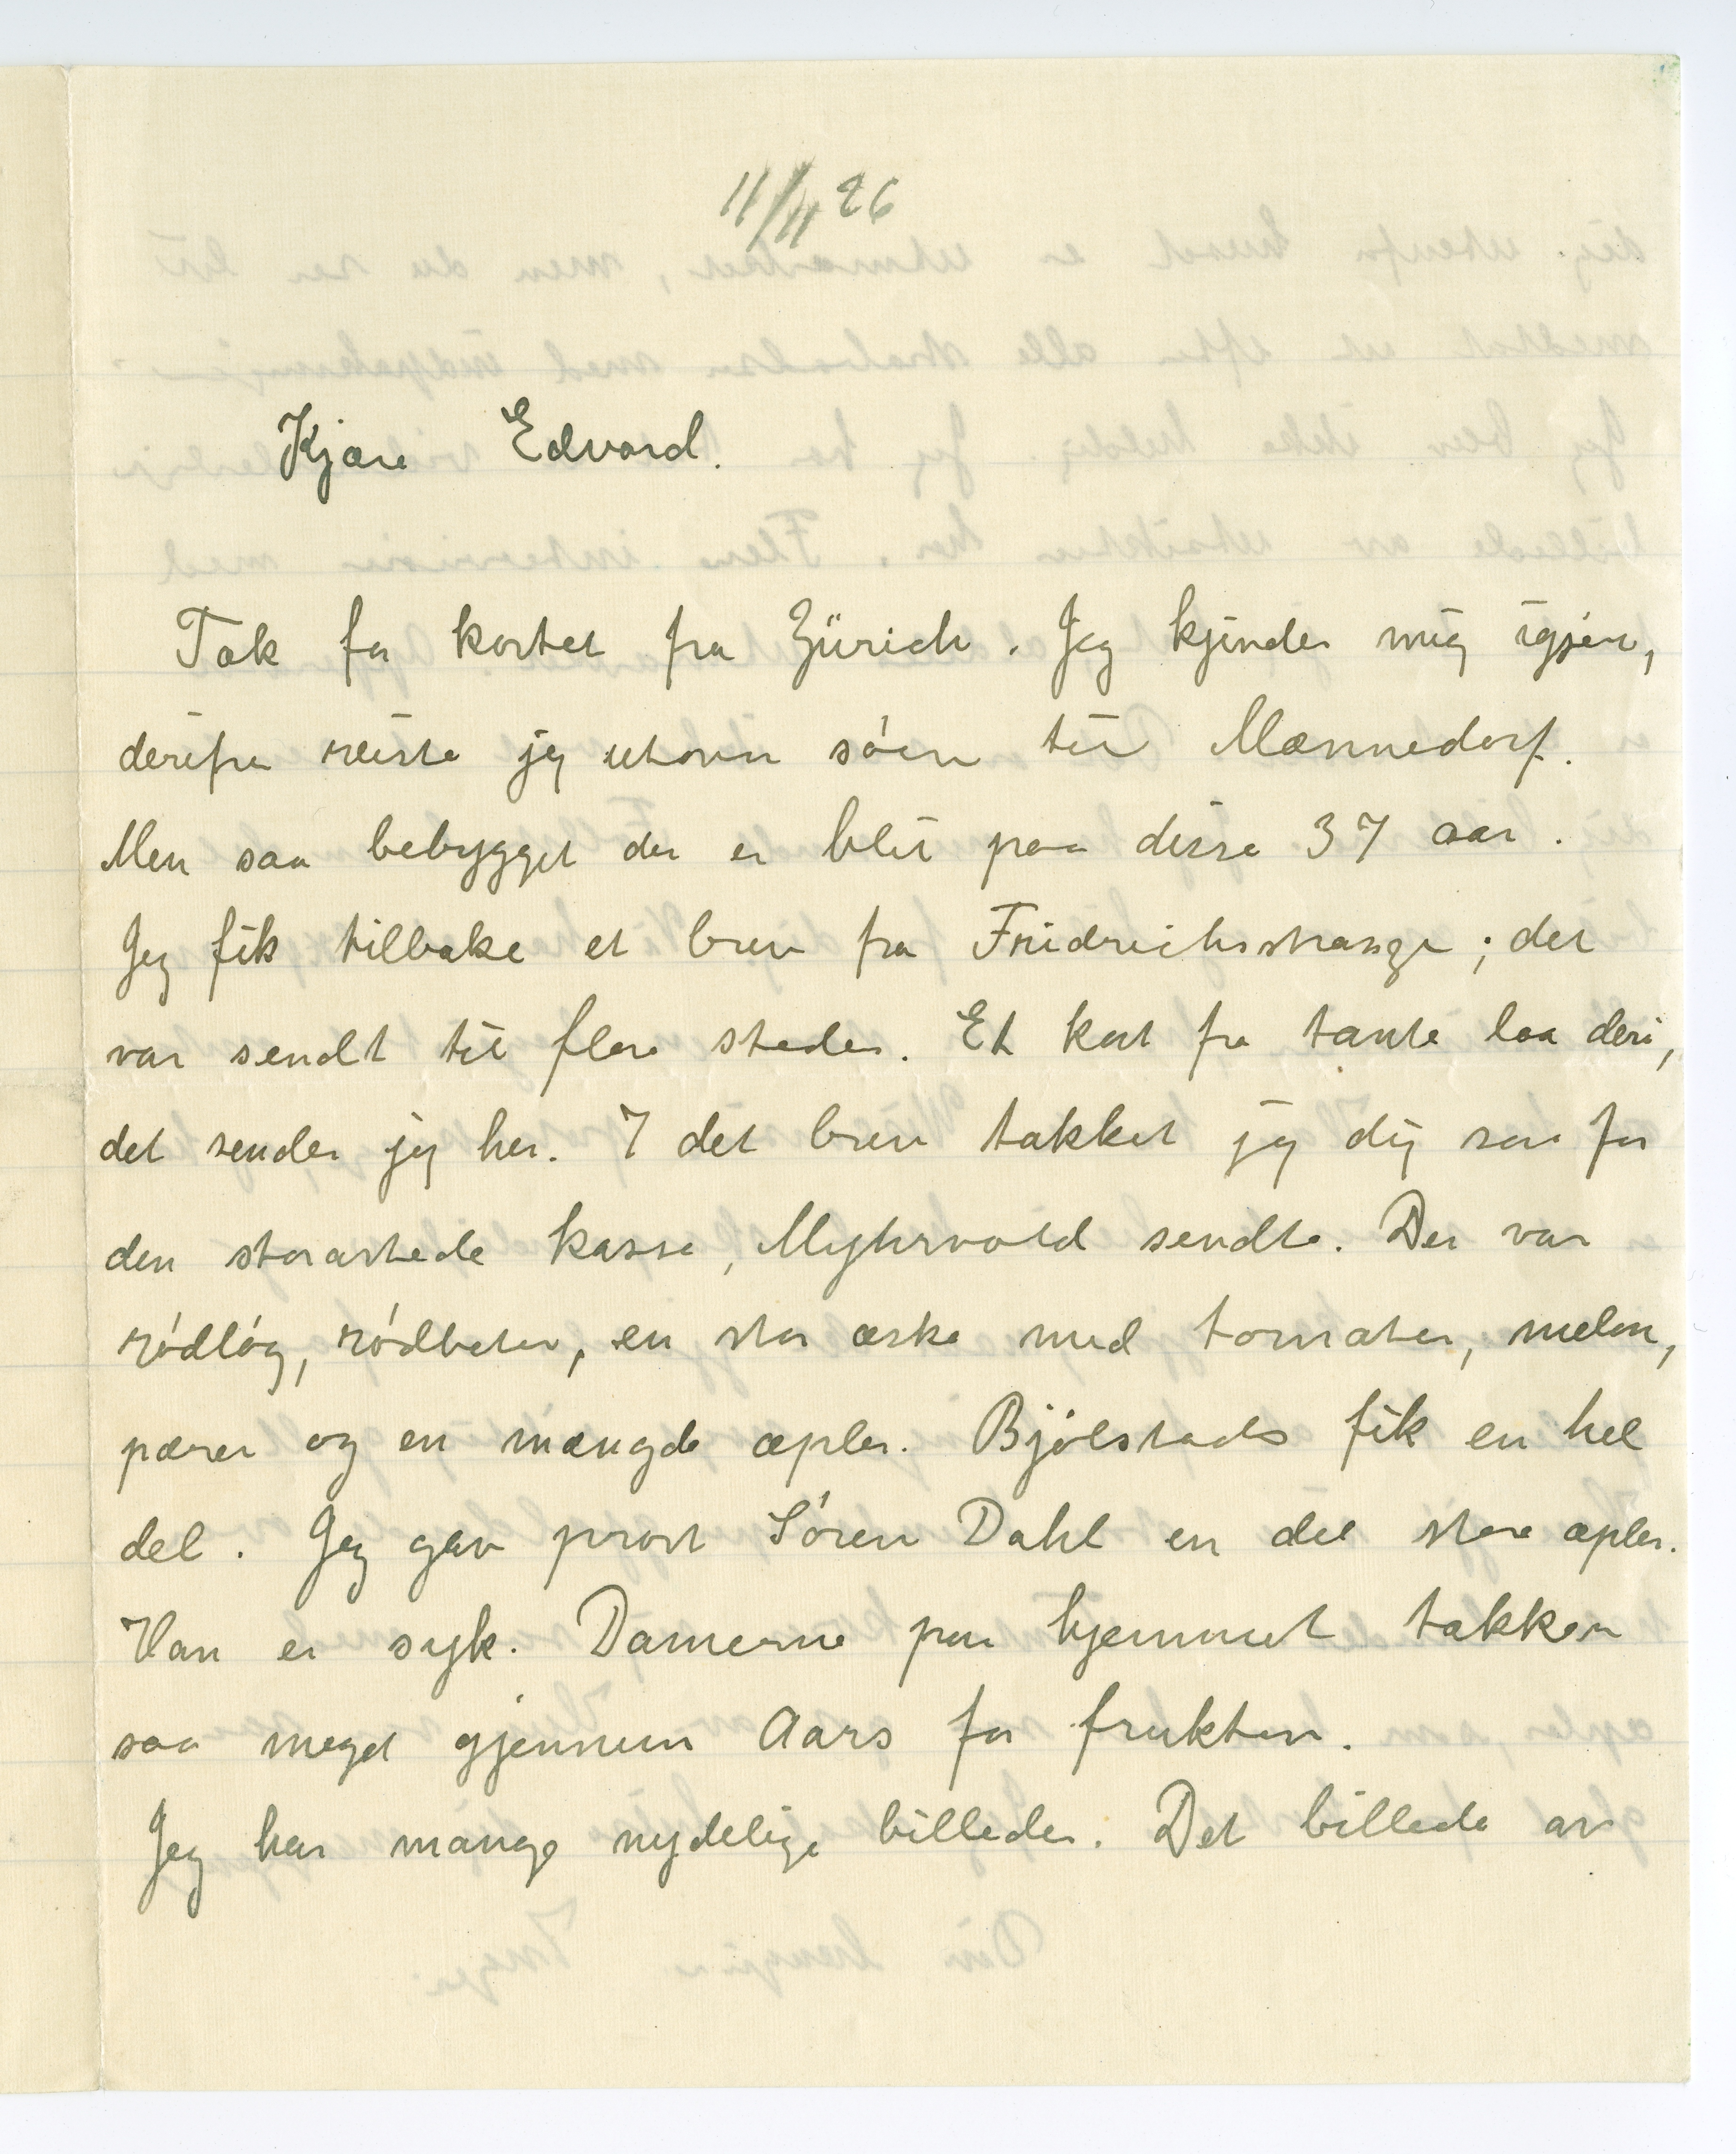 11/11 26
Kjære Edvard.
Tak for kortet fra Zürich. Jeg kjender mig igjen,
derifra reiste jeg utover søen til Mænnedorf.
Men saa bebygget der er blit paa disse 37 aar.
Jeg fik tilbake et brev fra Friedrichsstrasze; det
var sendt til flere steder. Et kort fra tante laa deri,
det sender jeg her. I det brev takket jeg dig saa for
den storartede kasse, Myhrvold sendte. Der var
rødløg, rødbeter, en stor æske med tomater, melon,
pærer og en mængde æpler. Bjølstads fik en hel
del. Jeg gav prost Søren Dahl en del store æpler.
Han er syk. Damerne paa hjemmet takker
saa meget gjennem Aars for frukten.
Jeg har mange nydelige billeder. Det billede av